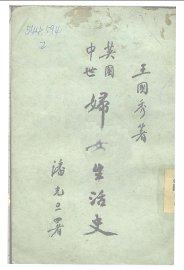 王國秀著
英國
中世
婦女生活史
潘光旦署